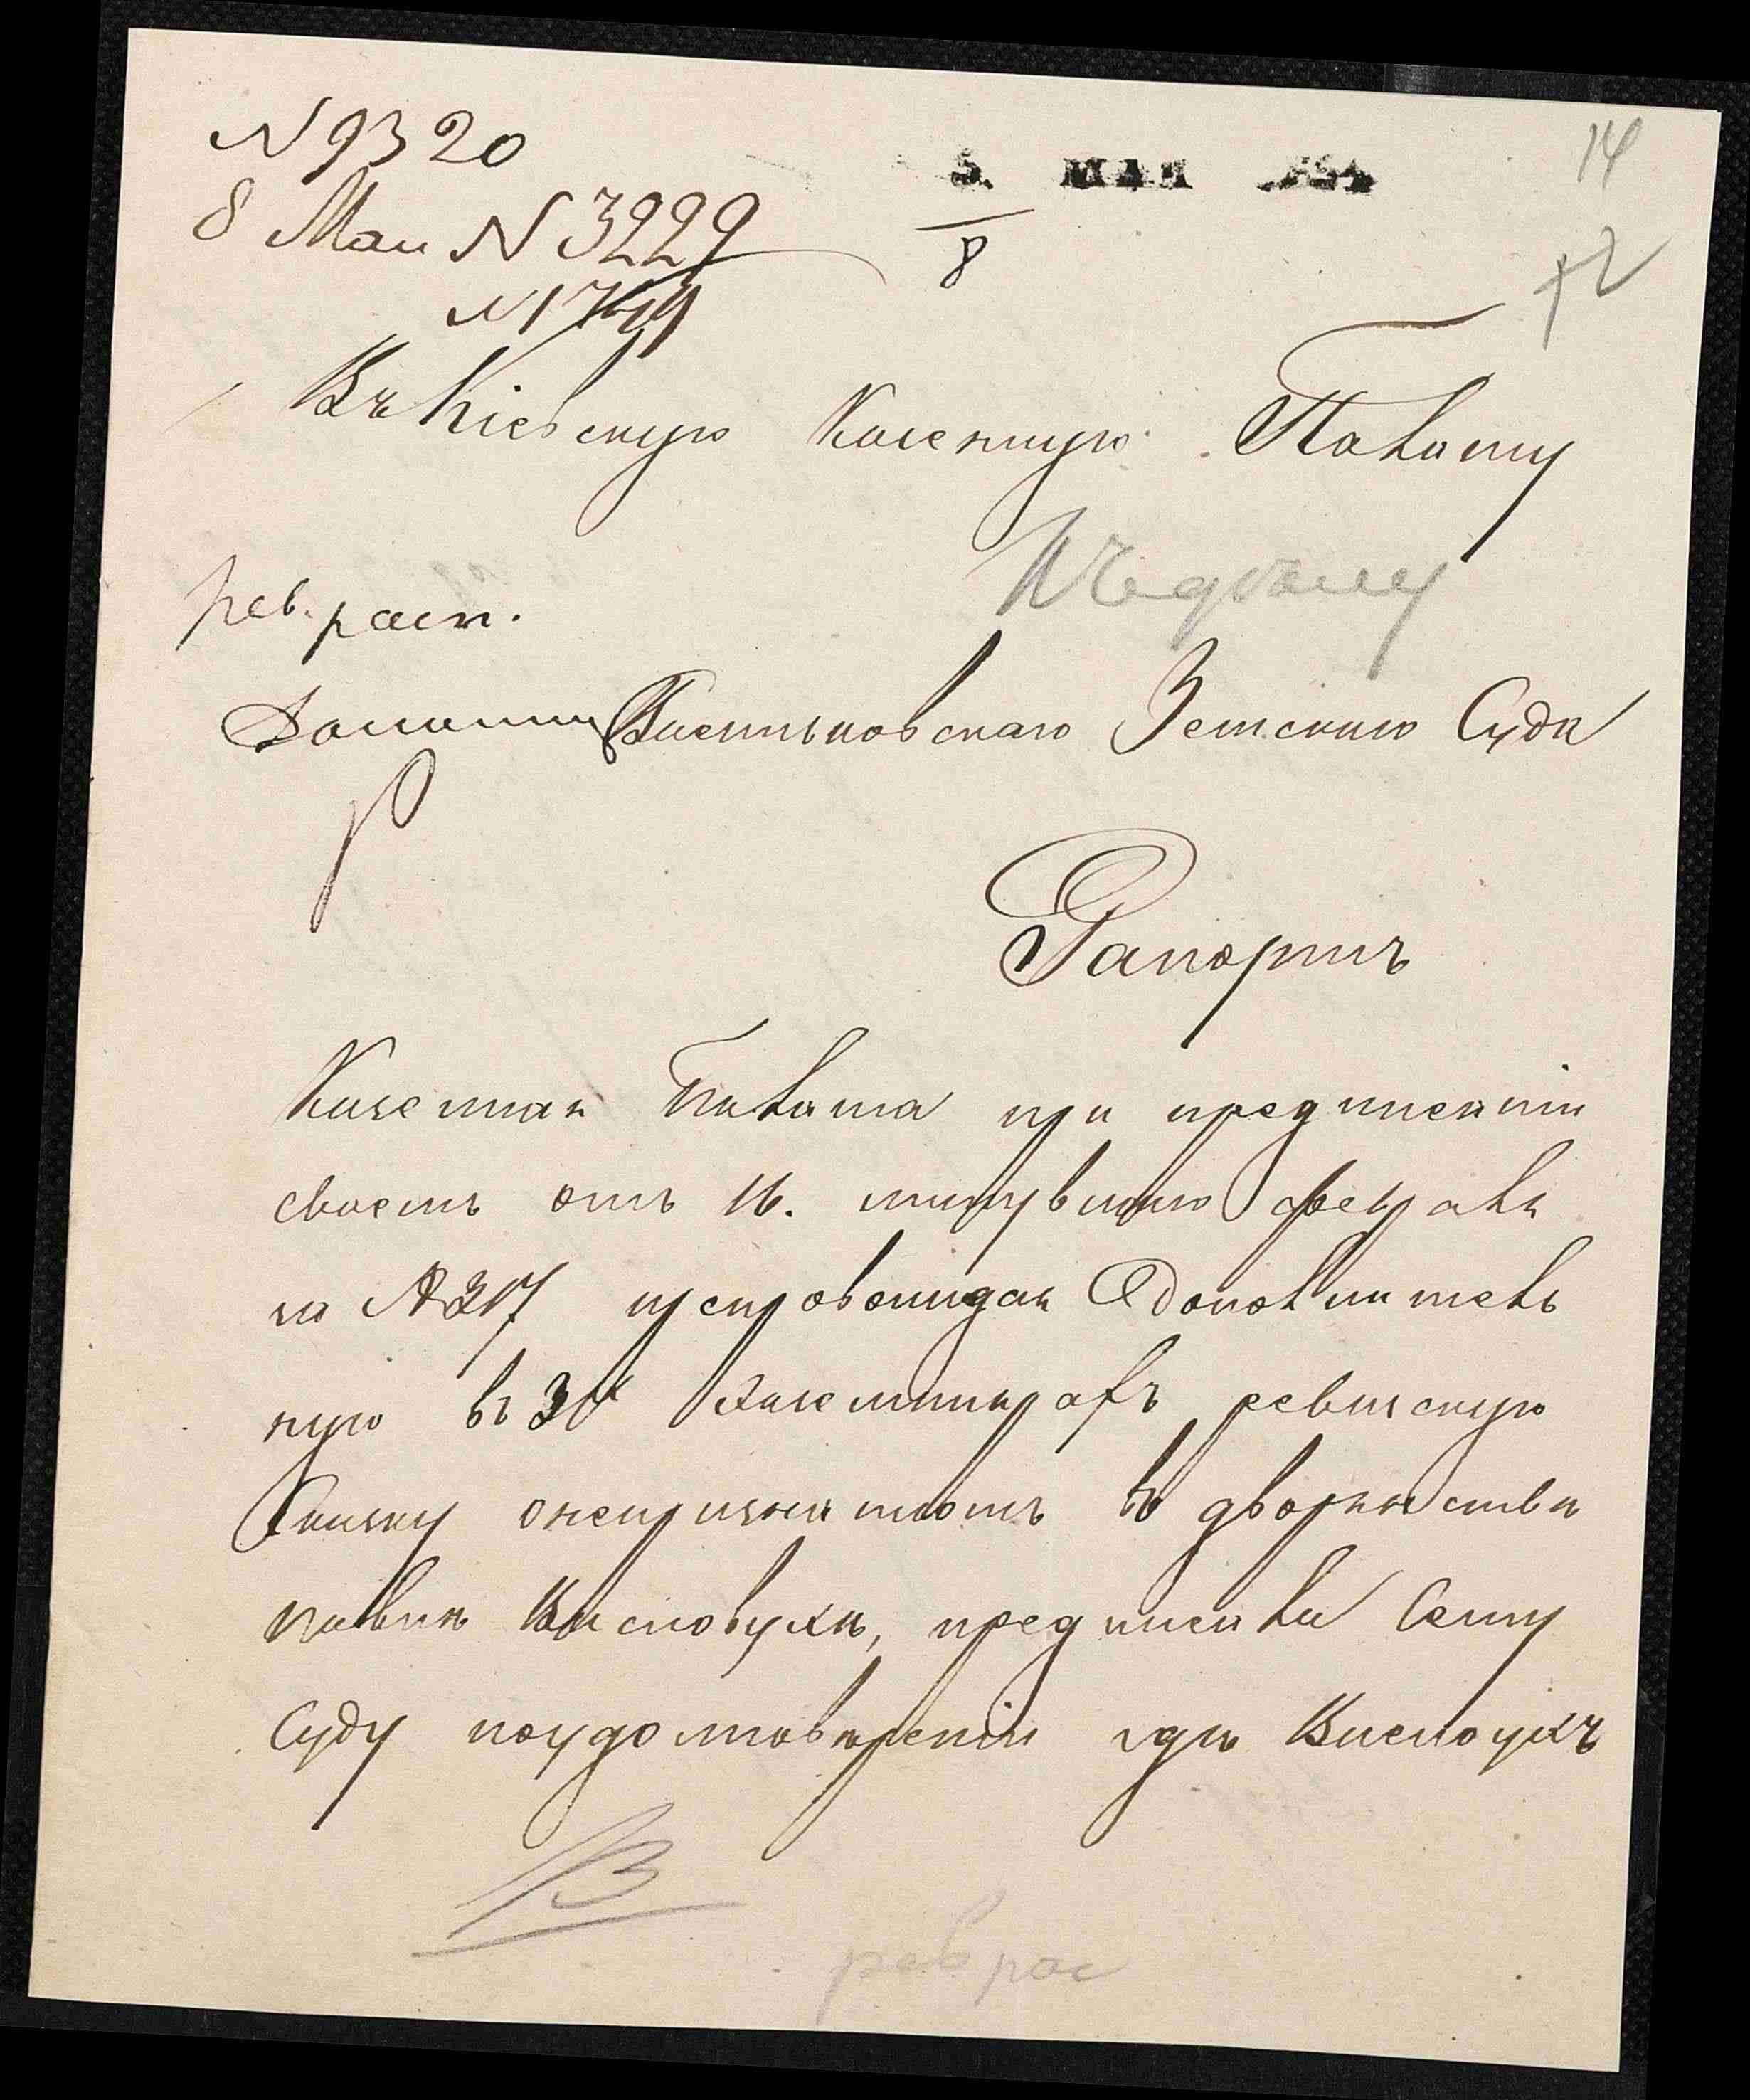 N 9320
5. МАЯ
14
8 Маи N 3229
8
12
Въ Кіевскую Казенную Палату
Къ делу
рев. расп.
Васильковскаго Земскаго Суда
Рапортъ
Казенная Палата при предписаніи
своемъ отъ 16. минувшаго февраля
за № 317 препровождая дополнитель
ную въ 3х экземплярахъ ревизскую
Сказку о непризнанномъ въ дворянстве
Павле Вислоухе, предписала Сему
Суду поудостовереніи где Вислоухъ
рев рас